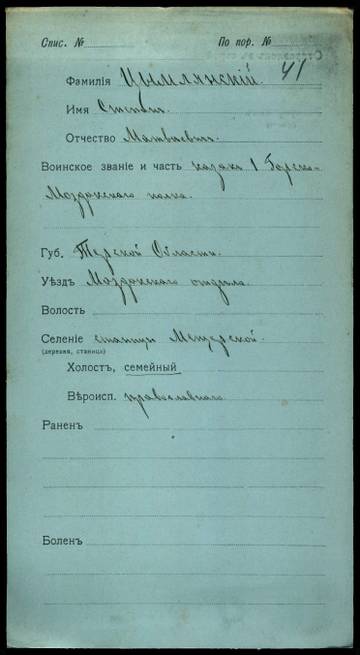 Спис. № По пор. №
41
Фамилія Цымлянскій.
Имя Степанъ.
Отчество Матвѣевичъ.
Воинское званіе и часть казакъ 1 Горско-
Моздокскаго полка.
Губ. Терской Области.
Уѣздъ Моздокскаго отдѣла.
Волость
Селеніе станицы Мекенской.
(деревня, станица)
Холостъ, семейный
Вѣроисп. православнаго.
Раненъ
Боленъ